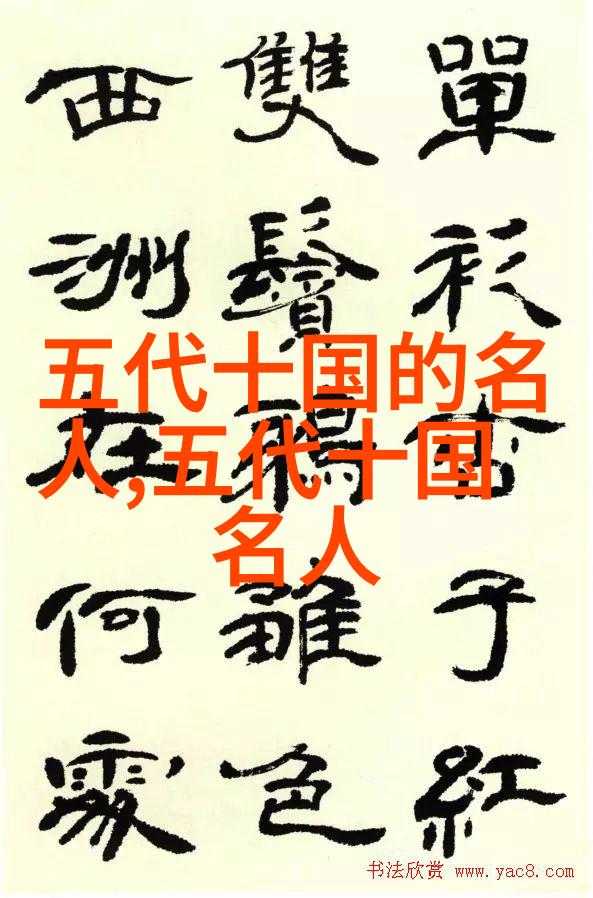 單衫杏子紅
雙鬢鴉雛色
西洲在何處
五代十国的名
人,五代十国
名人
书法欣赏 www.yac8.com